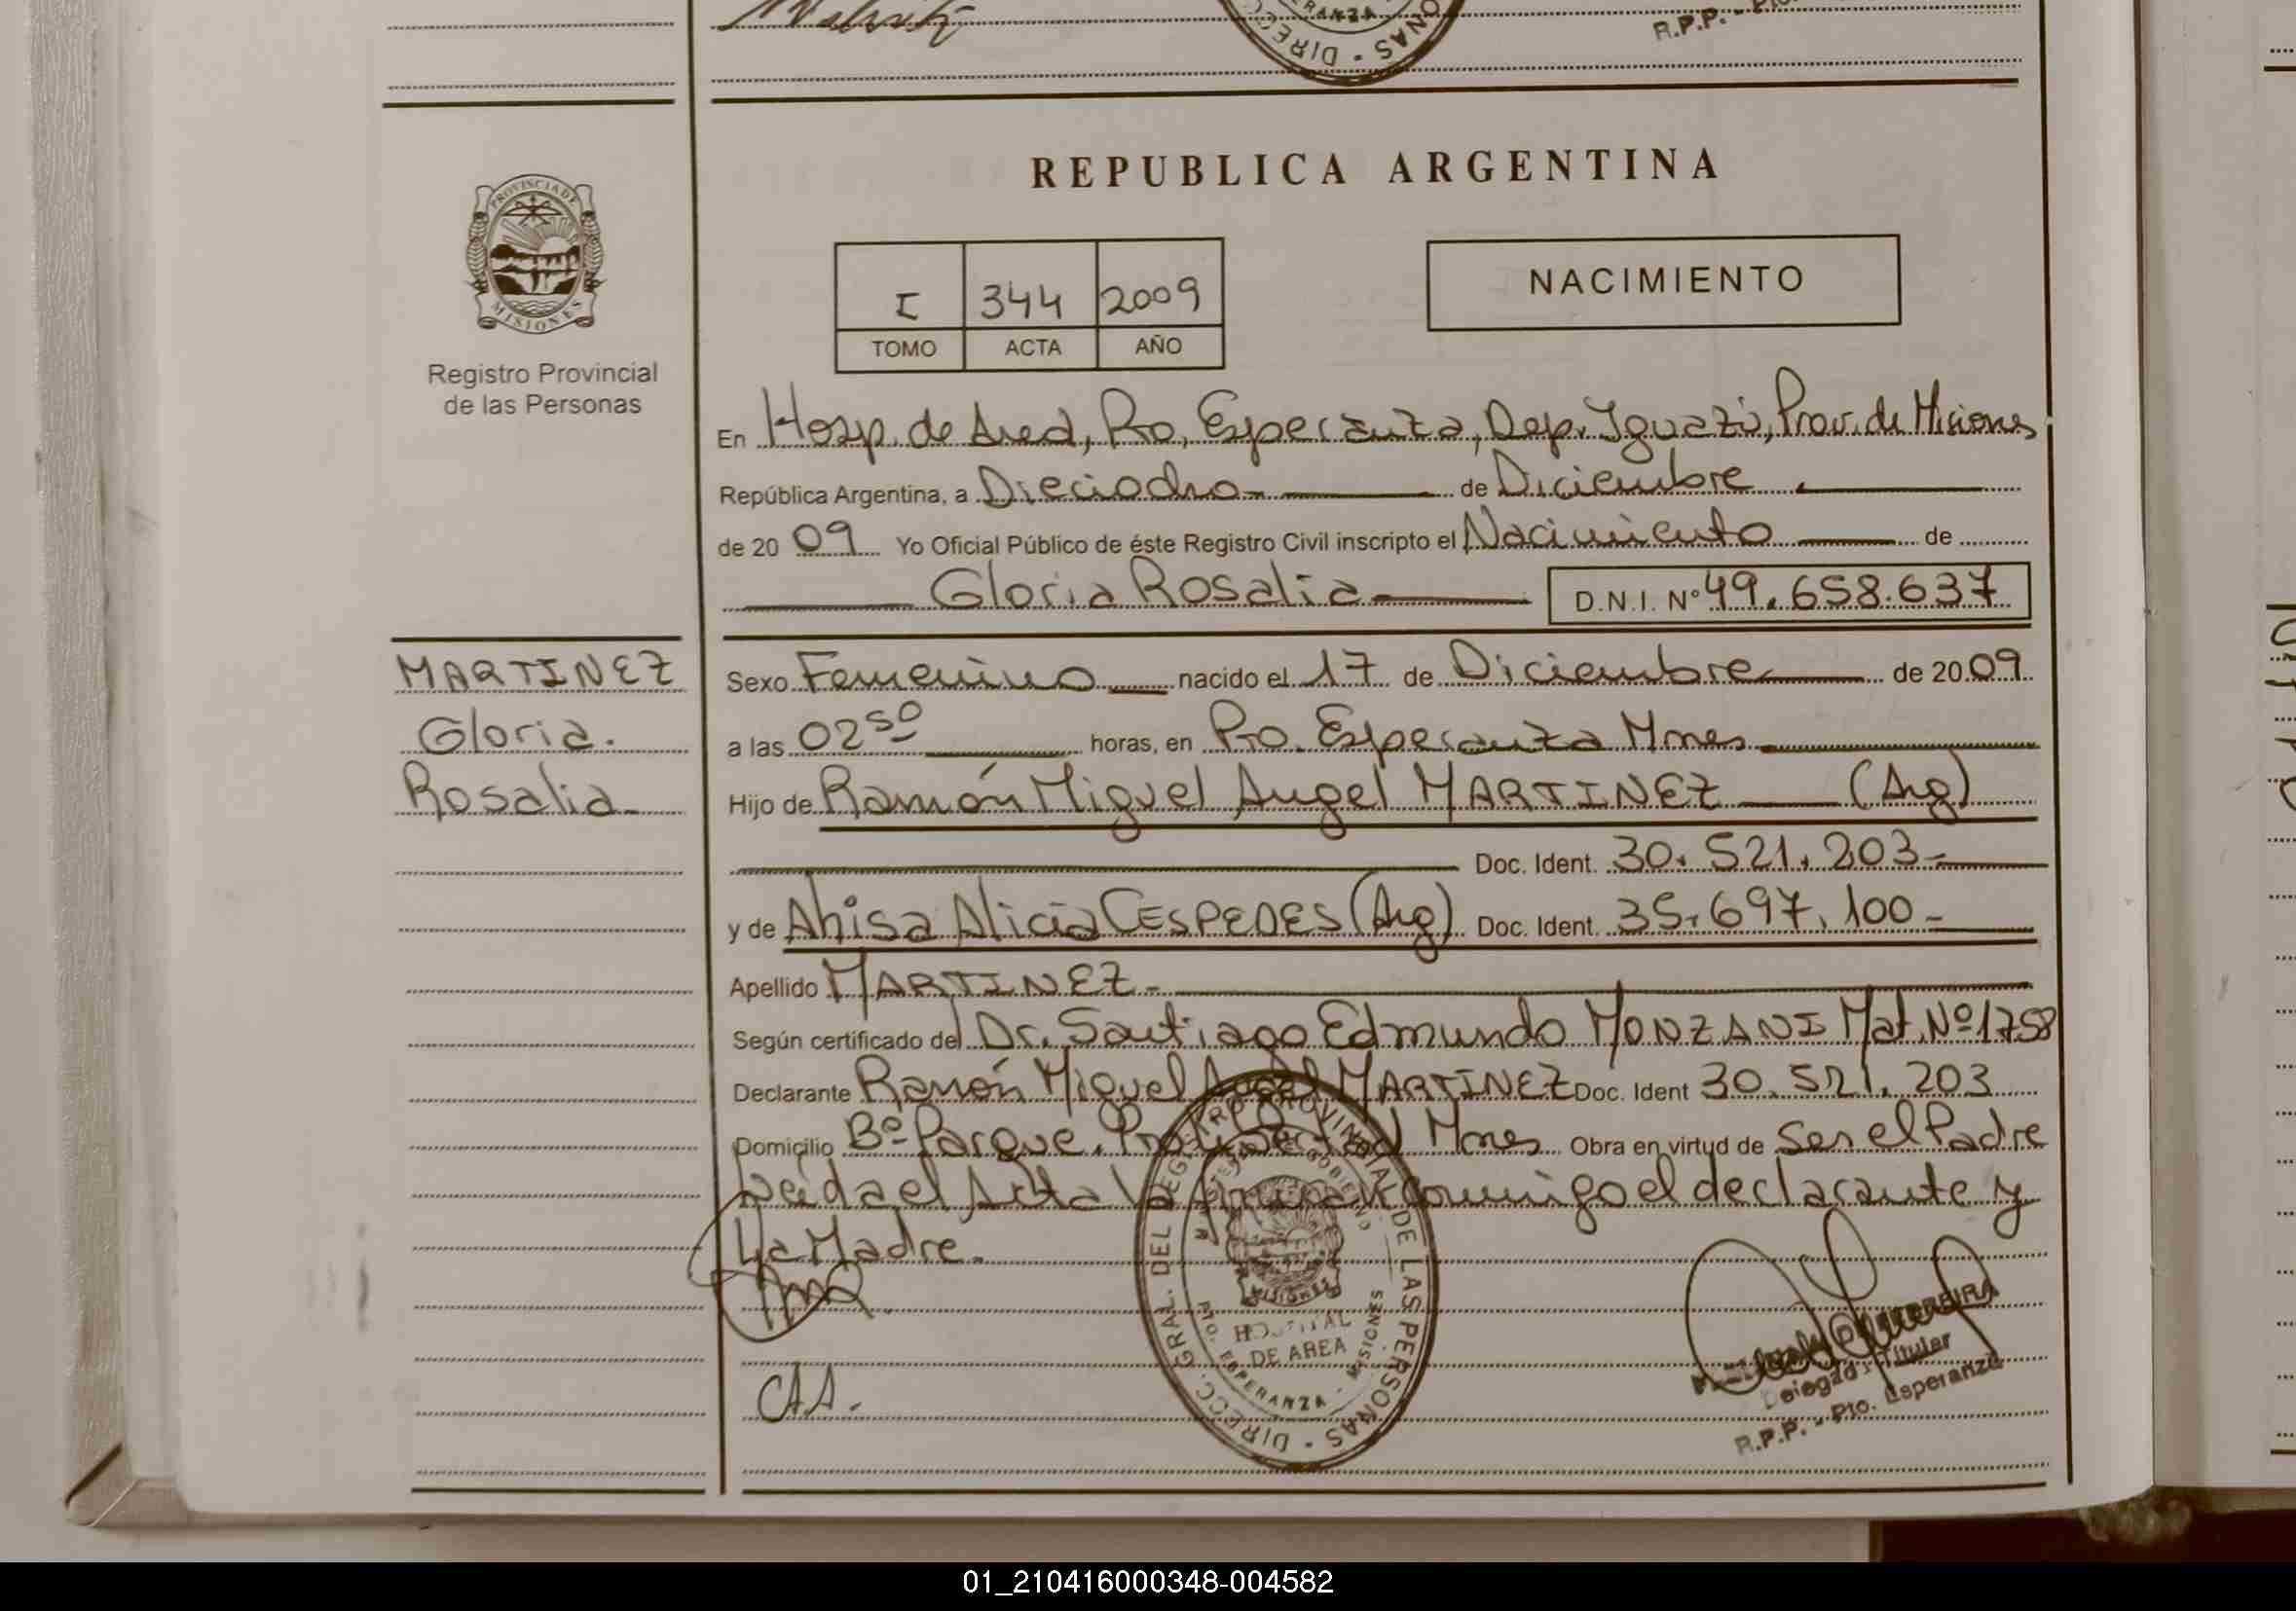 R.P.P.
ERANZA
DIRECC
NAS
REPUBLICA ARGENTINA
PROVINCIA DE
MISIONES
Registro Provincial
de las Personas
I 344 2009
TOMO ACTA AÑO
NACIMIENTO
En Hosp. de Area, Pto, Esperanza, Dep. Iguazú, Prov. de Misiones
República Argentina, a Dieciocho de Diciembre
de 20 09 Yo Oficial Público de éste Registro Civil inscripto el Nacimiento de
Gloria Rosalia D.N.I. Nº 49.658.637
MARTINEZ
Gloria.
Rosalia
Sexo Femenino nacido el 17 de Diciembre de 20 09
a las 02 50 horas, en Pto. Esperanza Mnes
Hijo de Ramón Miguel Angel MARTINEZ (Arg)
Doc. Ident. 30.521.203-
y de Ahisa Alicia CESPEDES (Arg) Doc. Ident. 35.697.100-
Apellido MARTINEZ-
Según certificado del Dr. Santiago Edmundo MONZANI Mat. Nº 1758
Declarante Ramón Miguel Angel MARTINEZ Doc. Ident 30.521.203
Domicilio Bº Parque, Mnes Obra en virtud de Ser el Padre
Leida el Acta la conmigo el declarante y
La Madre.
C.A.
DIRECC. GRAL. DEL REGISTRO PROVINCIAL DE LAS PERSONAS
MISIONES
HOSPITAL
DE AREA
PTO. ESPERANZA - MISIONES
Delegado Titular
R.P.P. - Pto. Esperanza
01_210416000348-004582